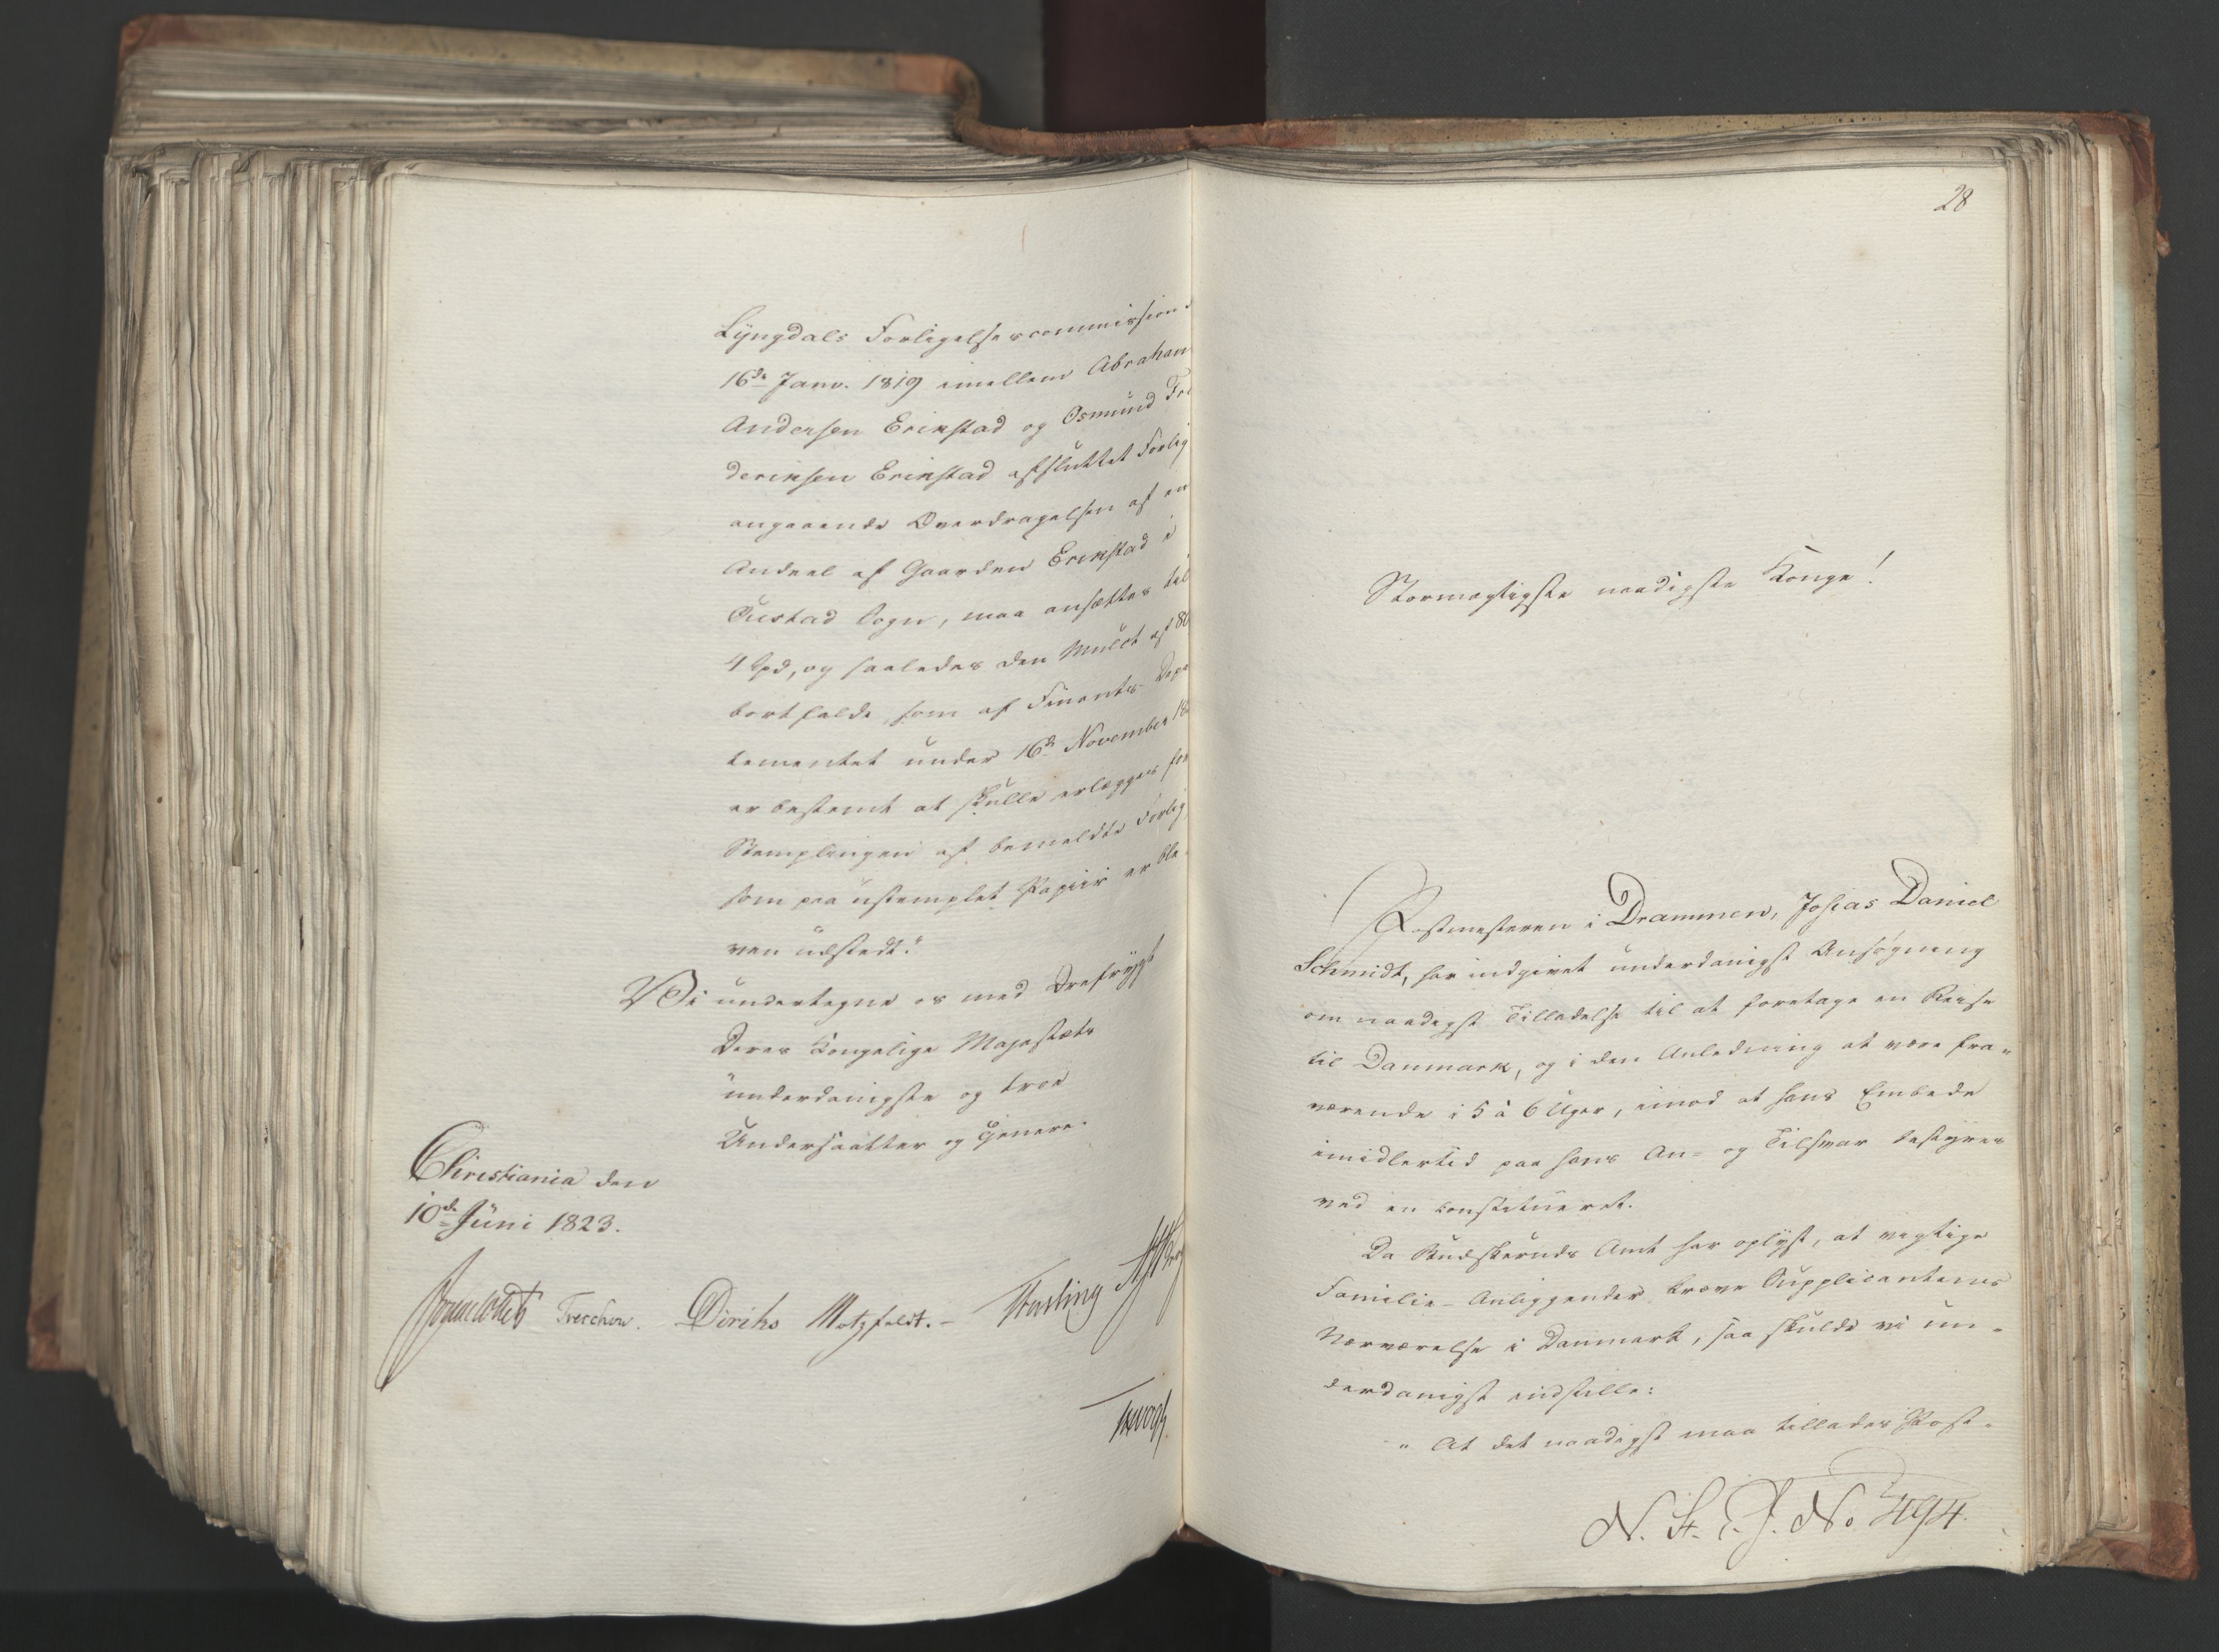 Lyngdals Forligelsescommission d
16de Janv. 1819 imellem Abraham
Andersen Erikstad og Osmund Fre
deriksen Erikstad afsluttet Forlig
angaaende Overdragelsen af en
Andeel af Gaarden Erikstad i
Qvistad Sogn, maa ansættes til
4 Spd, og saaledes den Mulct af 80
bortfalde, som af Finants-Depa
tementet under 16de November 18
er bestemt at skulle erlægges for
Stemplingen af bemeldte Forlig
som paa ustemplet Papiir er ble
ven udstedt."
Vi undertegne os med Ærefrygt
Deres Kongelige Majestæts
underdanigste og troe
Undersaatter og Tjenere.
Christiania den
10de Juni 1823.
Treschow. Diriks Motzfeldt.-
28
Stormægtigste naadigste Konge!
Postmesteren i Drammen, Josias Daniel
Schmidt, har indgivet underdanigst Ansøgning
om naadigst Tilladelse til at foretage en Reise
til Danmark, og i den Anledning at være fra-
værende i 5 à 6 Uger, imod at hans Embede
imidlertid paa hans An- og Tilsvar bestyres
ved en Constitueret.
Da Buskeruds Amt har oplyst, at vigtige
Familie-Anliggender kræve Supplicantens
Nærværelse i Danmark, saa skulde vi un-
derdanigst indstille:
"At det naadigst maa tillades Post-
N. St. C. J. No 494.